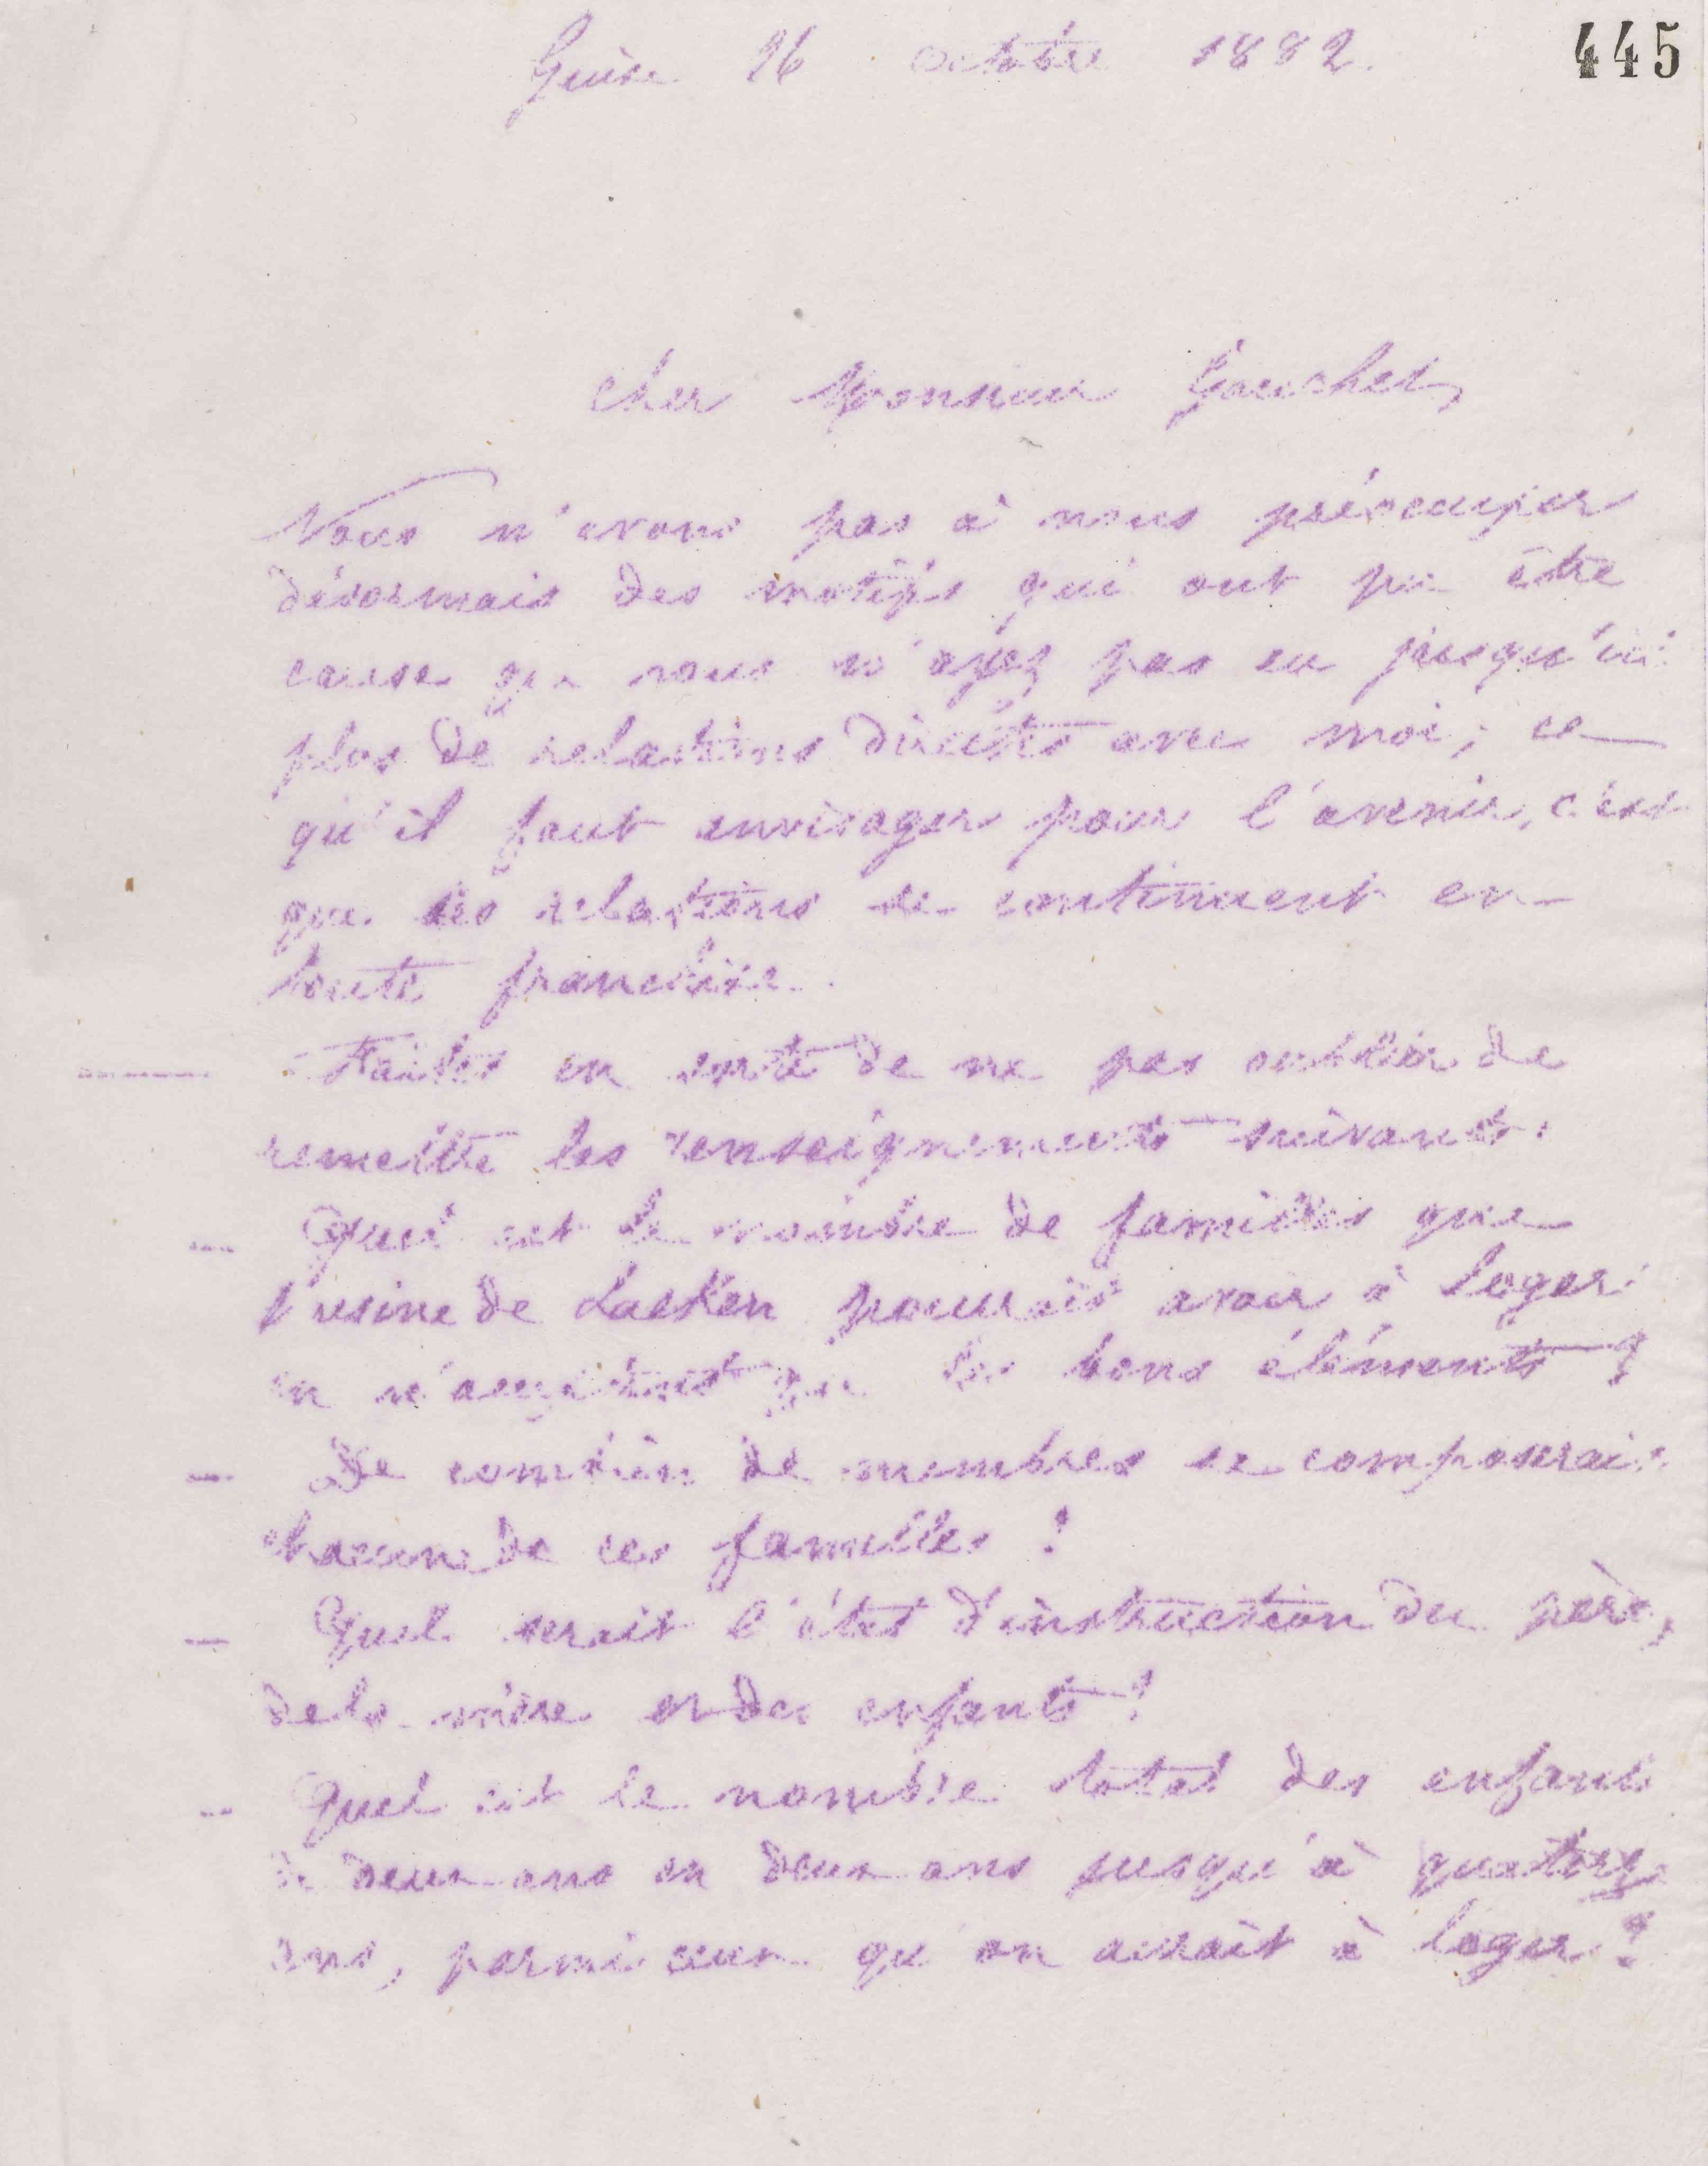 Guise 26 octobre 1882.
445
Cher Monsieur Gauchet,
Nous n'avons pas à nous préoccuper
désormais des motifs qui ont pu être
cause que vous n'ayez pas eu jusqu'ici
plus de relations directes avec moi ; ce
qu'il faut envisager pour l'avenir, c'est
que les relations se continuent en
toute franchise.
Faites en sorte de ne pas oublier de
remettre les renseignements suivants :
— Quel est le nombre de familles que
l'usine de Laeken pourrait avoir à loger
en n'acceptant que les bons éléments ?
— De combien de membres se composerait
chacune de ces familles ?
— Quel serait l'état d'instruction du père,
de la mère et des enfants ?
— Quel est le nombre total des enfants
de deux ans en deux ans jusqu'à quatorze
ans, parmi ceux qu'on aurait à loger ?